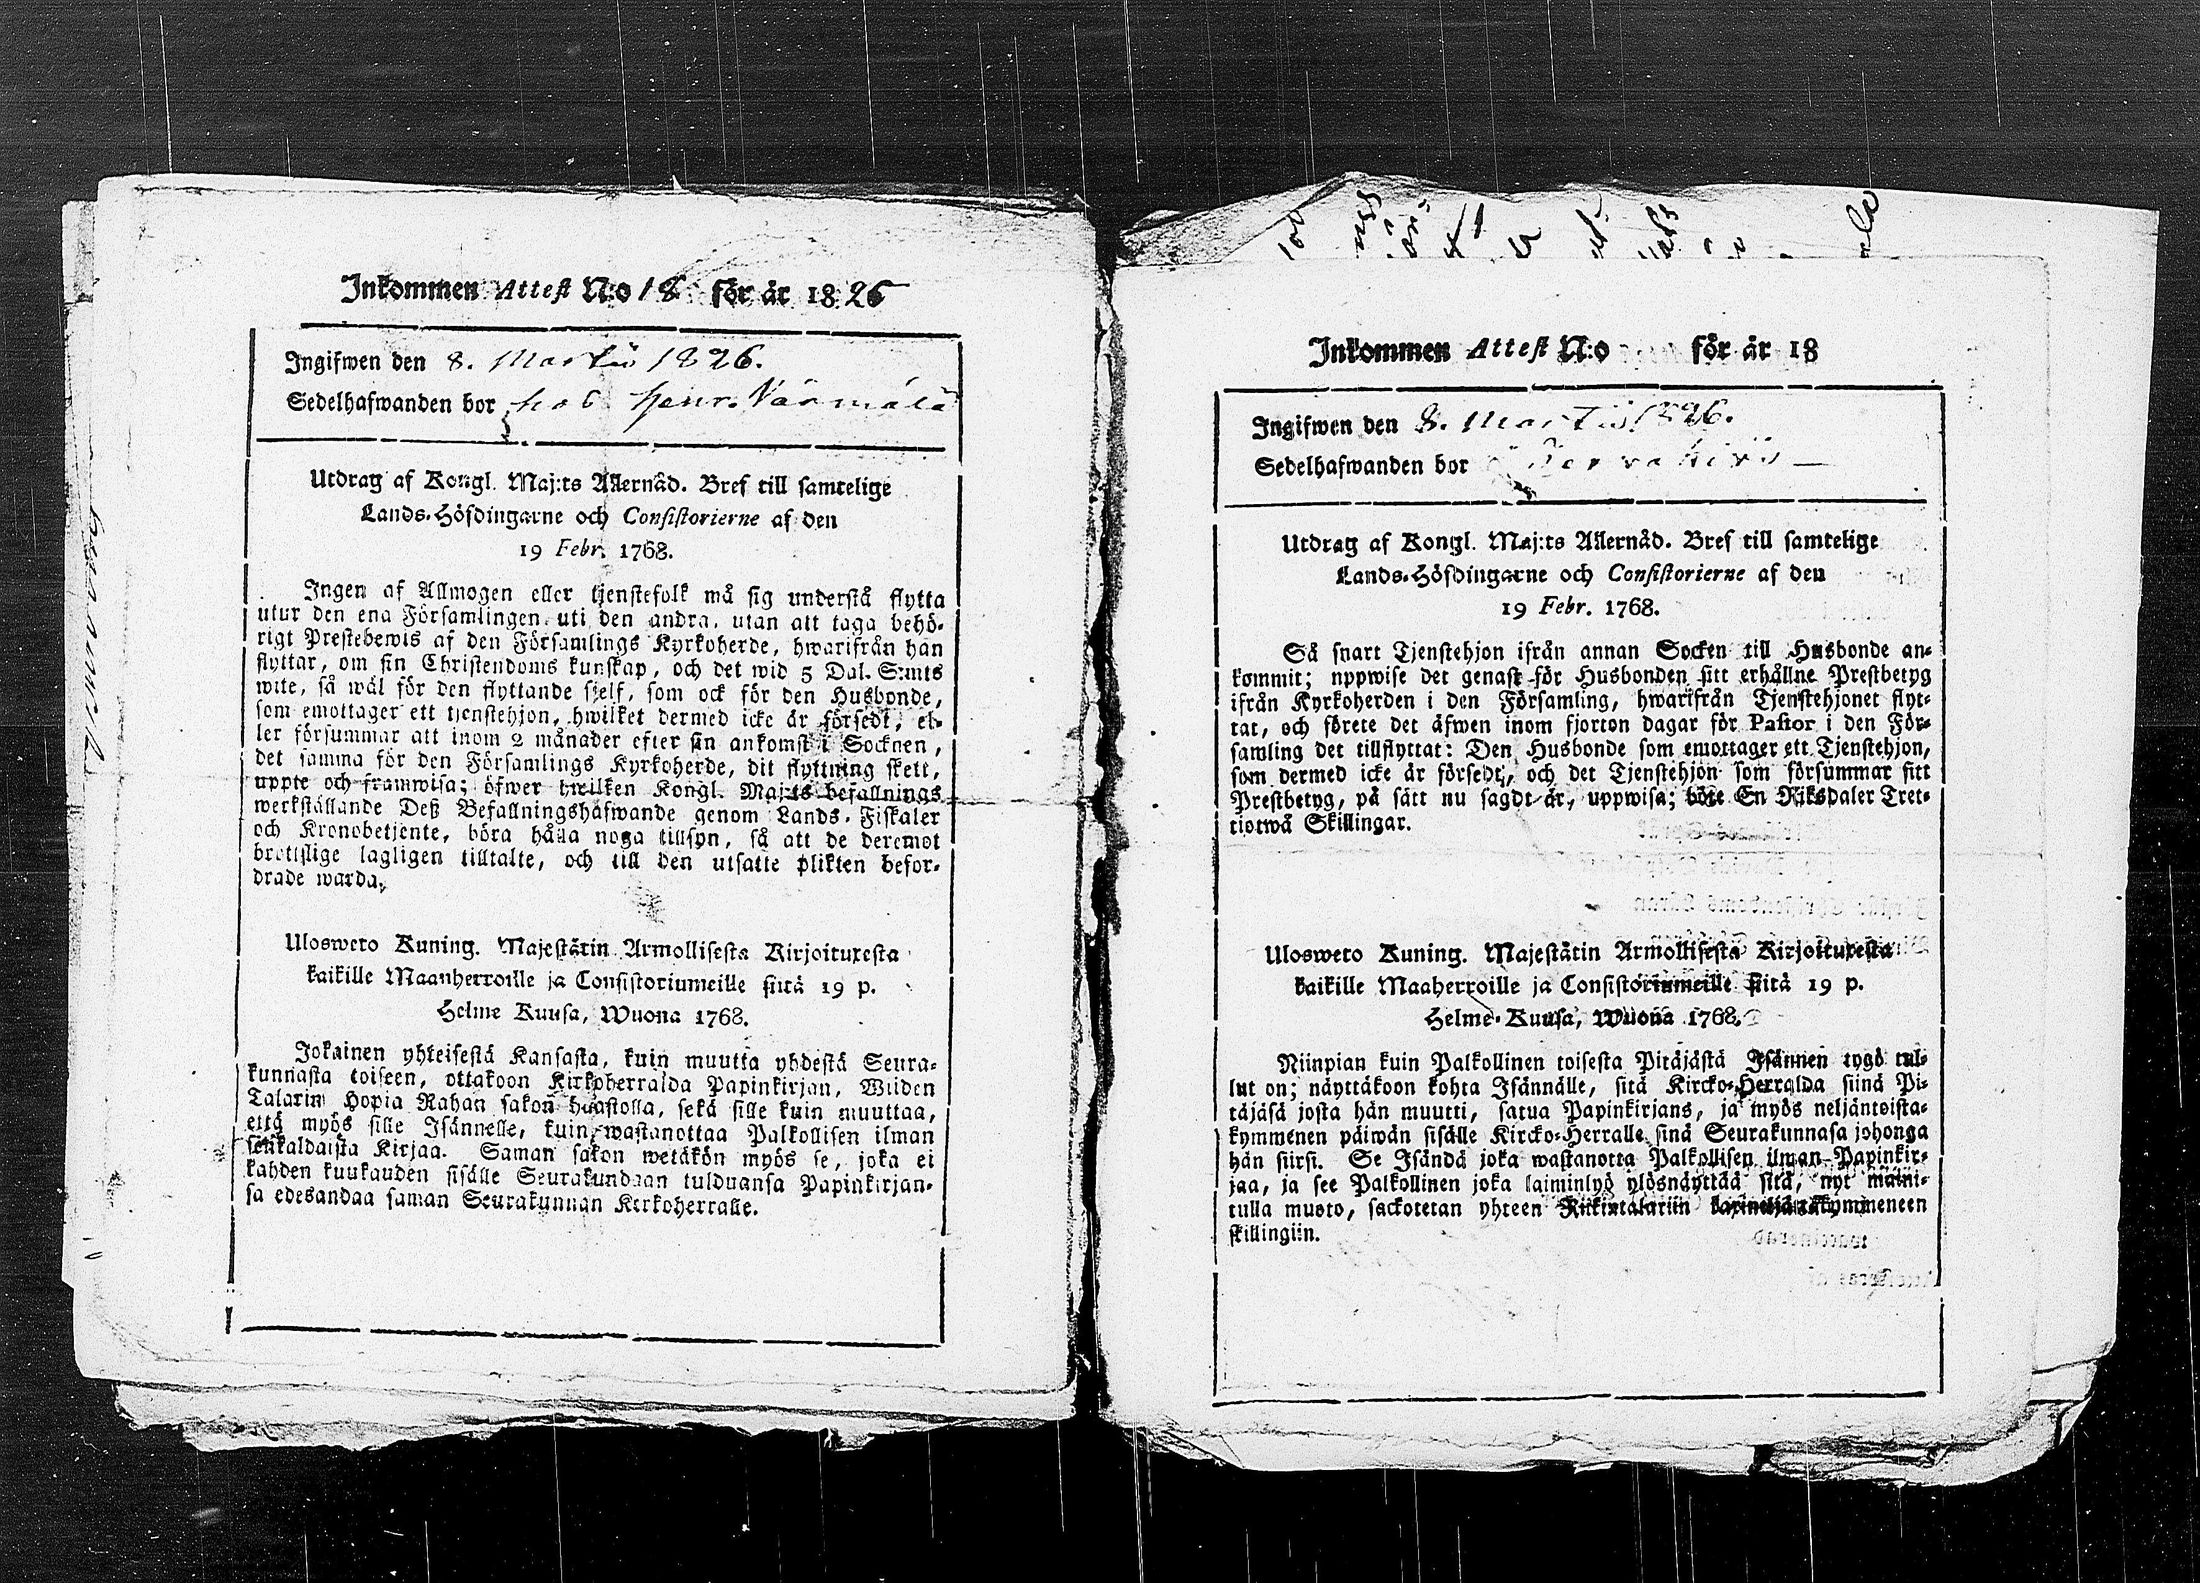 Inkommen Attest N:o 18 för år 1826
Ingifwen den 8. Martii 1826.
Sedelhafwanden bor hos Henr. Närmälä
Utdrag af Kongl. Maj:ts Allernåd. Bref till samtelige
Lands-Höfdingarne och Consistorierne af den
19 Febr. 1768.
Ingen af Allmogen eller tjenstefolk må sig understå flytta
utur den ena Församlingen uti den andra, utan att taga behö-
rigt Prestebewis af den Församlings Kyrkoherde, hwarifrån han
flyttar, om sin Christendoms kunskap, och det wid 5 Dal. S:mts
wite, så wäl för den flyttande sjelf, som ock för den Husbonde,
som emottager ett tjenstehjon, hwilket dermed icke är försedt, el-
ler försummar att inom 2 månader efter sin ankomst i Socknen,
det samma för den Församlings Kyrkoherde, dit flyttning skett,
uppte och framwisa; öfwer hwilken Kongl. Maj:ts befallnings
werkställande Deß Befallningshafwande genom Lands-Fiskaler
och Kronobetjente, böra hålla noga tillsyn, så att de deremot
brottslige lagligen tilltalte, och till den utsatte plikten befor-
drade warda.
Ulosweto Kuning. Majestätin Armollisesta Kirjoituxesta
kaikille Maanherroille ja Consistoriumeille siitä 19 p.
Helme Kuusa, Wuona 1768.
Jokainen yhteisestä Kansasta, kuin muutta yhdestä Seura-
kunnasta toiseen, ottakoon Kirkoherralda Papinkirjan, Wiiden
Talarin Hopia Rahan sakon haastolla, sekä sille kuin muuttaa,
että myös sille Isännelle, kuin wastanottaa Palkollisen ilman
senkaldaista Kirjaa. Saman sakon wetäkön myös se, joka ei
kahden kuukauden sisälle Seurakundaan tulduansa Papinkirjan-
sa edesandaa saman Seurakunnan Kirkoherralle.
Inkommen Attest N:o för år 18
Ingifwen den 8. Martii 1826.
Sedelhafwanden bor
Utdrag af Kongl. Maj:ts Allernåd. Bref till samtelige
Lands-Höfdingarne och Consistorierne af den
19 Febr. 1768.
Så snart Tjenstehjon ifrån annan Socken till Husbonde an-
kommit; uppwise det genast för Husbonden sitt erhållne Prestbetyg
ifrån Kyrkoherden i den Församling, hwarifrån Tjenstehjonet flyt-
tat, och förete det äfwen inom fjorton dagar för Pastor i den För-
samling det tillflyttat: Den Husbonde som emottager ett Tjenstehjon,
som dermed icke är försedt, och det Tjenstehjon som försummar sitt
Prestbetyg, på sätt nu sagdt är, uppwisa; böte En Riksdaler Tret-
tiotwå Skillingar.
Ulosweto Kuning. Majestätin Armollisesta Kirjoituxesta
kaikille Maaherroille ja Consistoriumeille siitä 19 p.
Helme-Kuusa, Wuona 1768.
Niinpian kuin Palkollinen toisesta Pitäjästä Isännen tygö tul-
lut on; näyttäkoon kohta Isännälle, sitä Kircko-Herralda siinä Pi-
täjäsä josta hän muutti, satua Papinkirjans, ja myös neljäntoista-
kymmenen päiwän sisälle Kircko-Herralle sinä Seurakunnasa johonga
hän siirsi. Se Isändä joka wastanotta Palkollisen ilman Papinkir-
jaa, ja see Palkollinen joka laiminlyö ylösnäyttää sitä, nyt maini-
tulla muoto, sackotetan yhteen Riikintalariin
skillingiin.